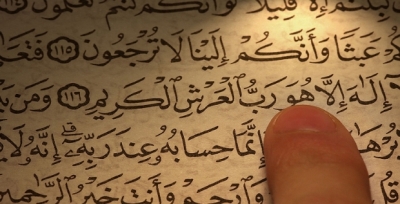 إِلَّا قَلِيلًا لَّوْ أَنَّكُمْ كُنتُمْ تَعْلَمُونَ
عَبَثًا وَأَنَّكُمْ إِلَيْنَا لَا تُرْجَعُونَ ١١٥
إِلَٰهَ إِلَّا هُوَ رَبُّ ٱلْعَرْشِ ٱلْكَرِيمِ ١١٦ وَمَن
إِنَّمَا حِسَابُهُۥ عِندَ رَبِّهِۦٓ ۚ إِنَّهُۥ لَا
وَٱرْحَمْ وَأَنتَ خَيْرُ ٱلرَّٰحِمِينَ